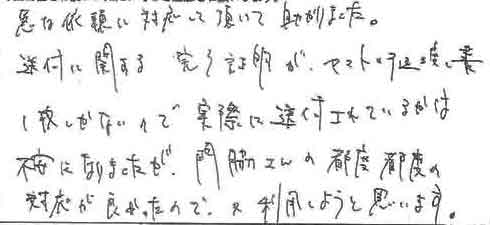 急な依頼に対応して頂いて助かりました。
送付に関する完了証明が、
1枚しかないので実際に送付されているかは
不安になりましたが、門脇さんの都度都度の
対応が良かったので、又利用しようと思います。